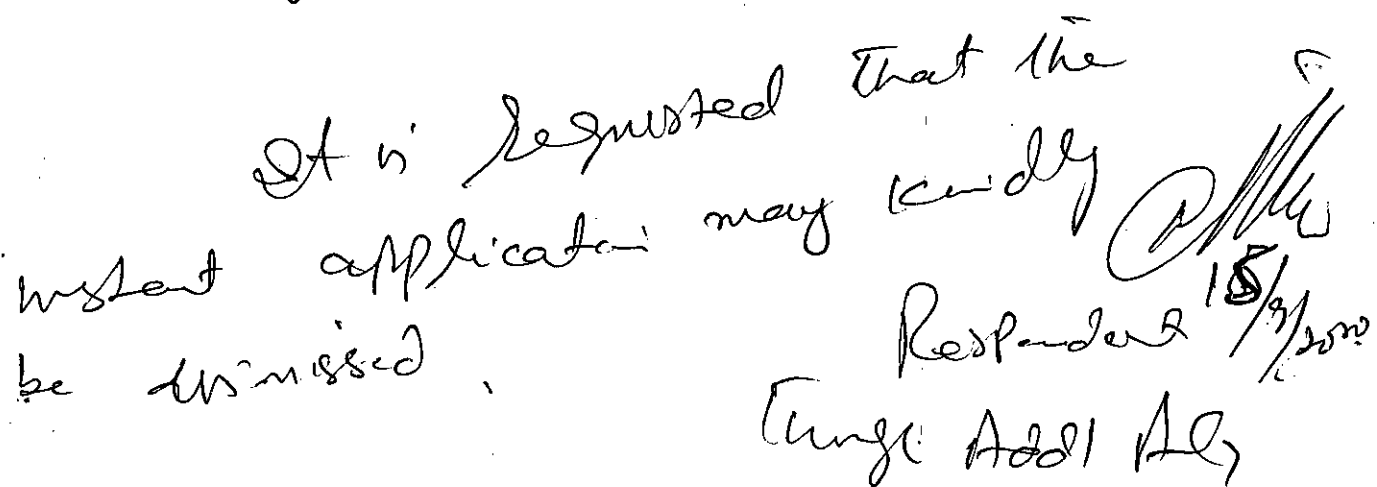 It is requested that the
instant application may kindly
be dismissed.
15/9/2020
Respondent
Through Addl AG